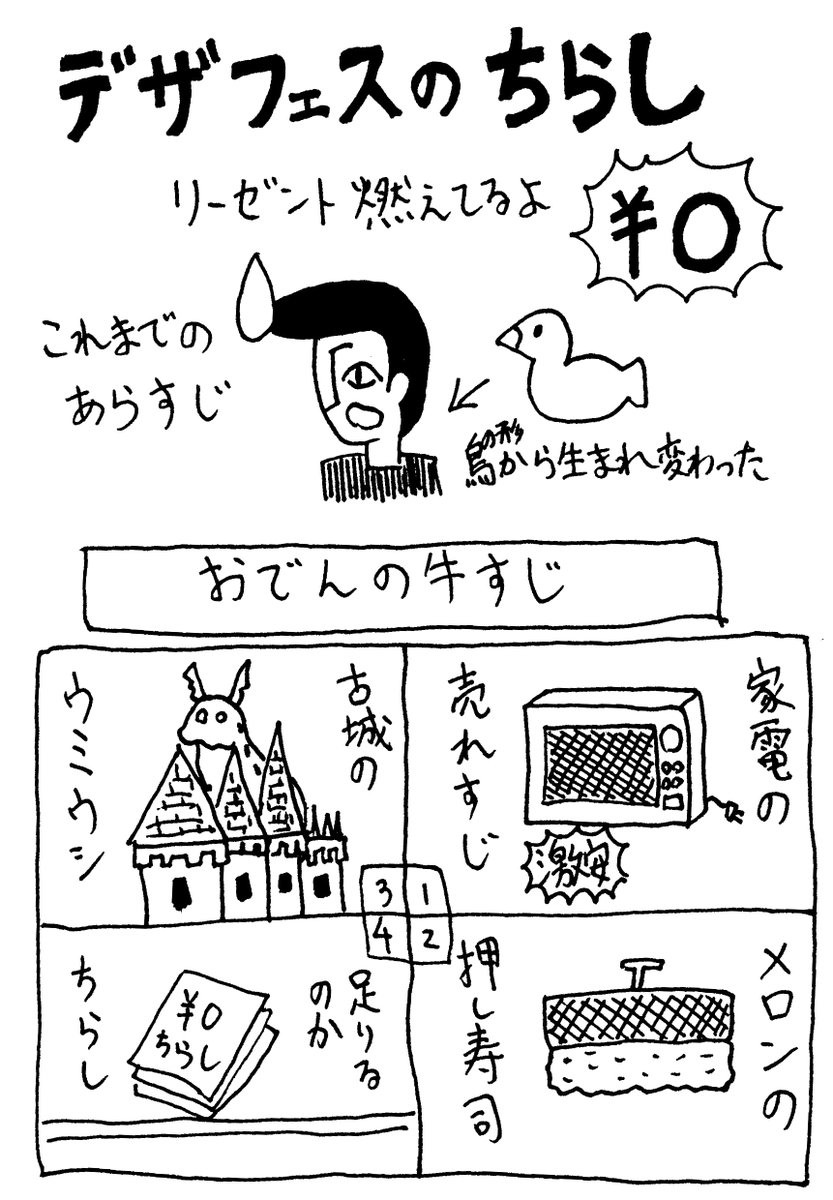 デザフェスのちらし
リーゼント燃えてるよ
¥0
これまでの
あらすじ
鳥の形から生まれ変わった
おでんの牛すじ
家電の
売れすじ
激安
1
メロンの
押し寿司
2
古城の
ウミウシ
3
足りる
のか
ちらし
¥0
ちらし
4